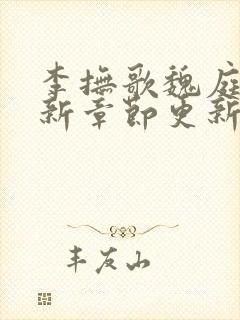 李撫歌魏庭
新章節更新
丰友山